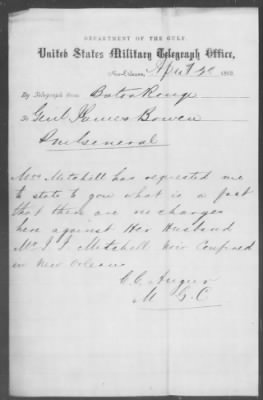 DEPARTMENT OF THE GULF.
United States Military Telegraph Office,
New-Orleans, April 20 1863.
By Telegraph from Baton Rouge
To Genl James Bowen
Pro General
Mrs Mitchell has requested me
to state to you what is a fact
that there are no charges
here against Her Husband
Mr J. F. Mitchell now Confined
in New Orleans
C. C. Augur
M G C